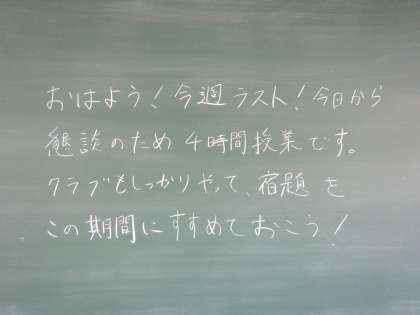 おはよう!今週ラスト!今日から
懇談のため4時間授業です。
クラブもしっかりやって、宿題を
この期間にすすめておこう!